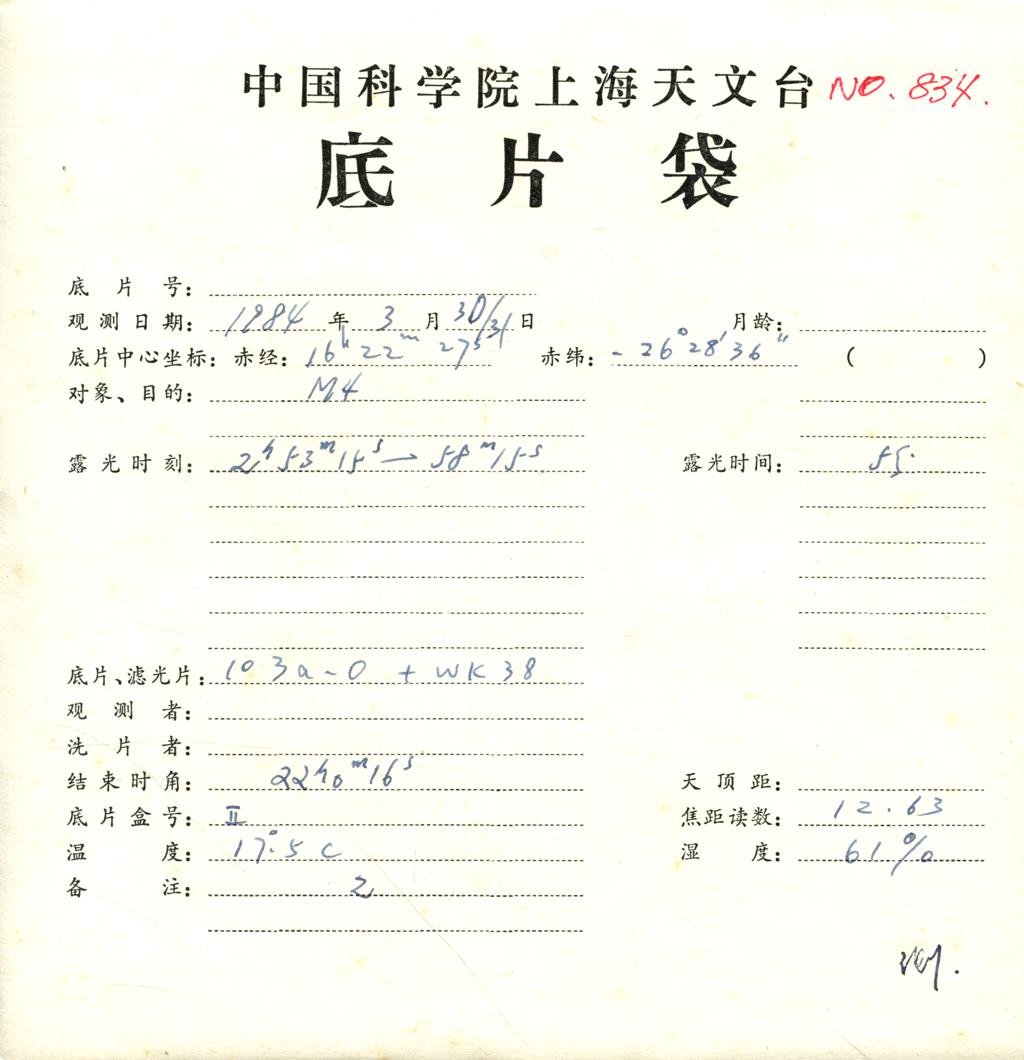 中国科学院上海天文台 NO. 834.
底片袋
底片号：
观测日期：1984年3月30/31日 月龄：
底片中心坐标：赤经：16h22m27s 赤纬：-26°28′36″ ( )
对象、目的：M4
露光时刻：2h53m15s→58m15s 露光时间：
底片、滤光片：103a-O + WK38
观测者：
洗片者：
结束时角：22h0m16s 天顶距：
底片盒号：II 焦距读数：12.63
温度：17°.5C 湿度：61%
备注：2